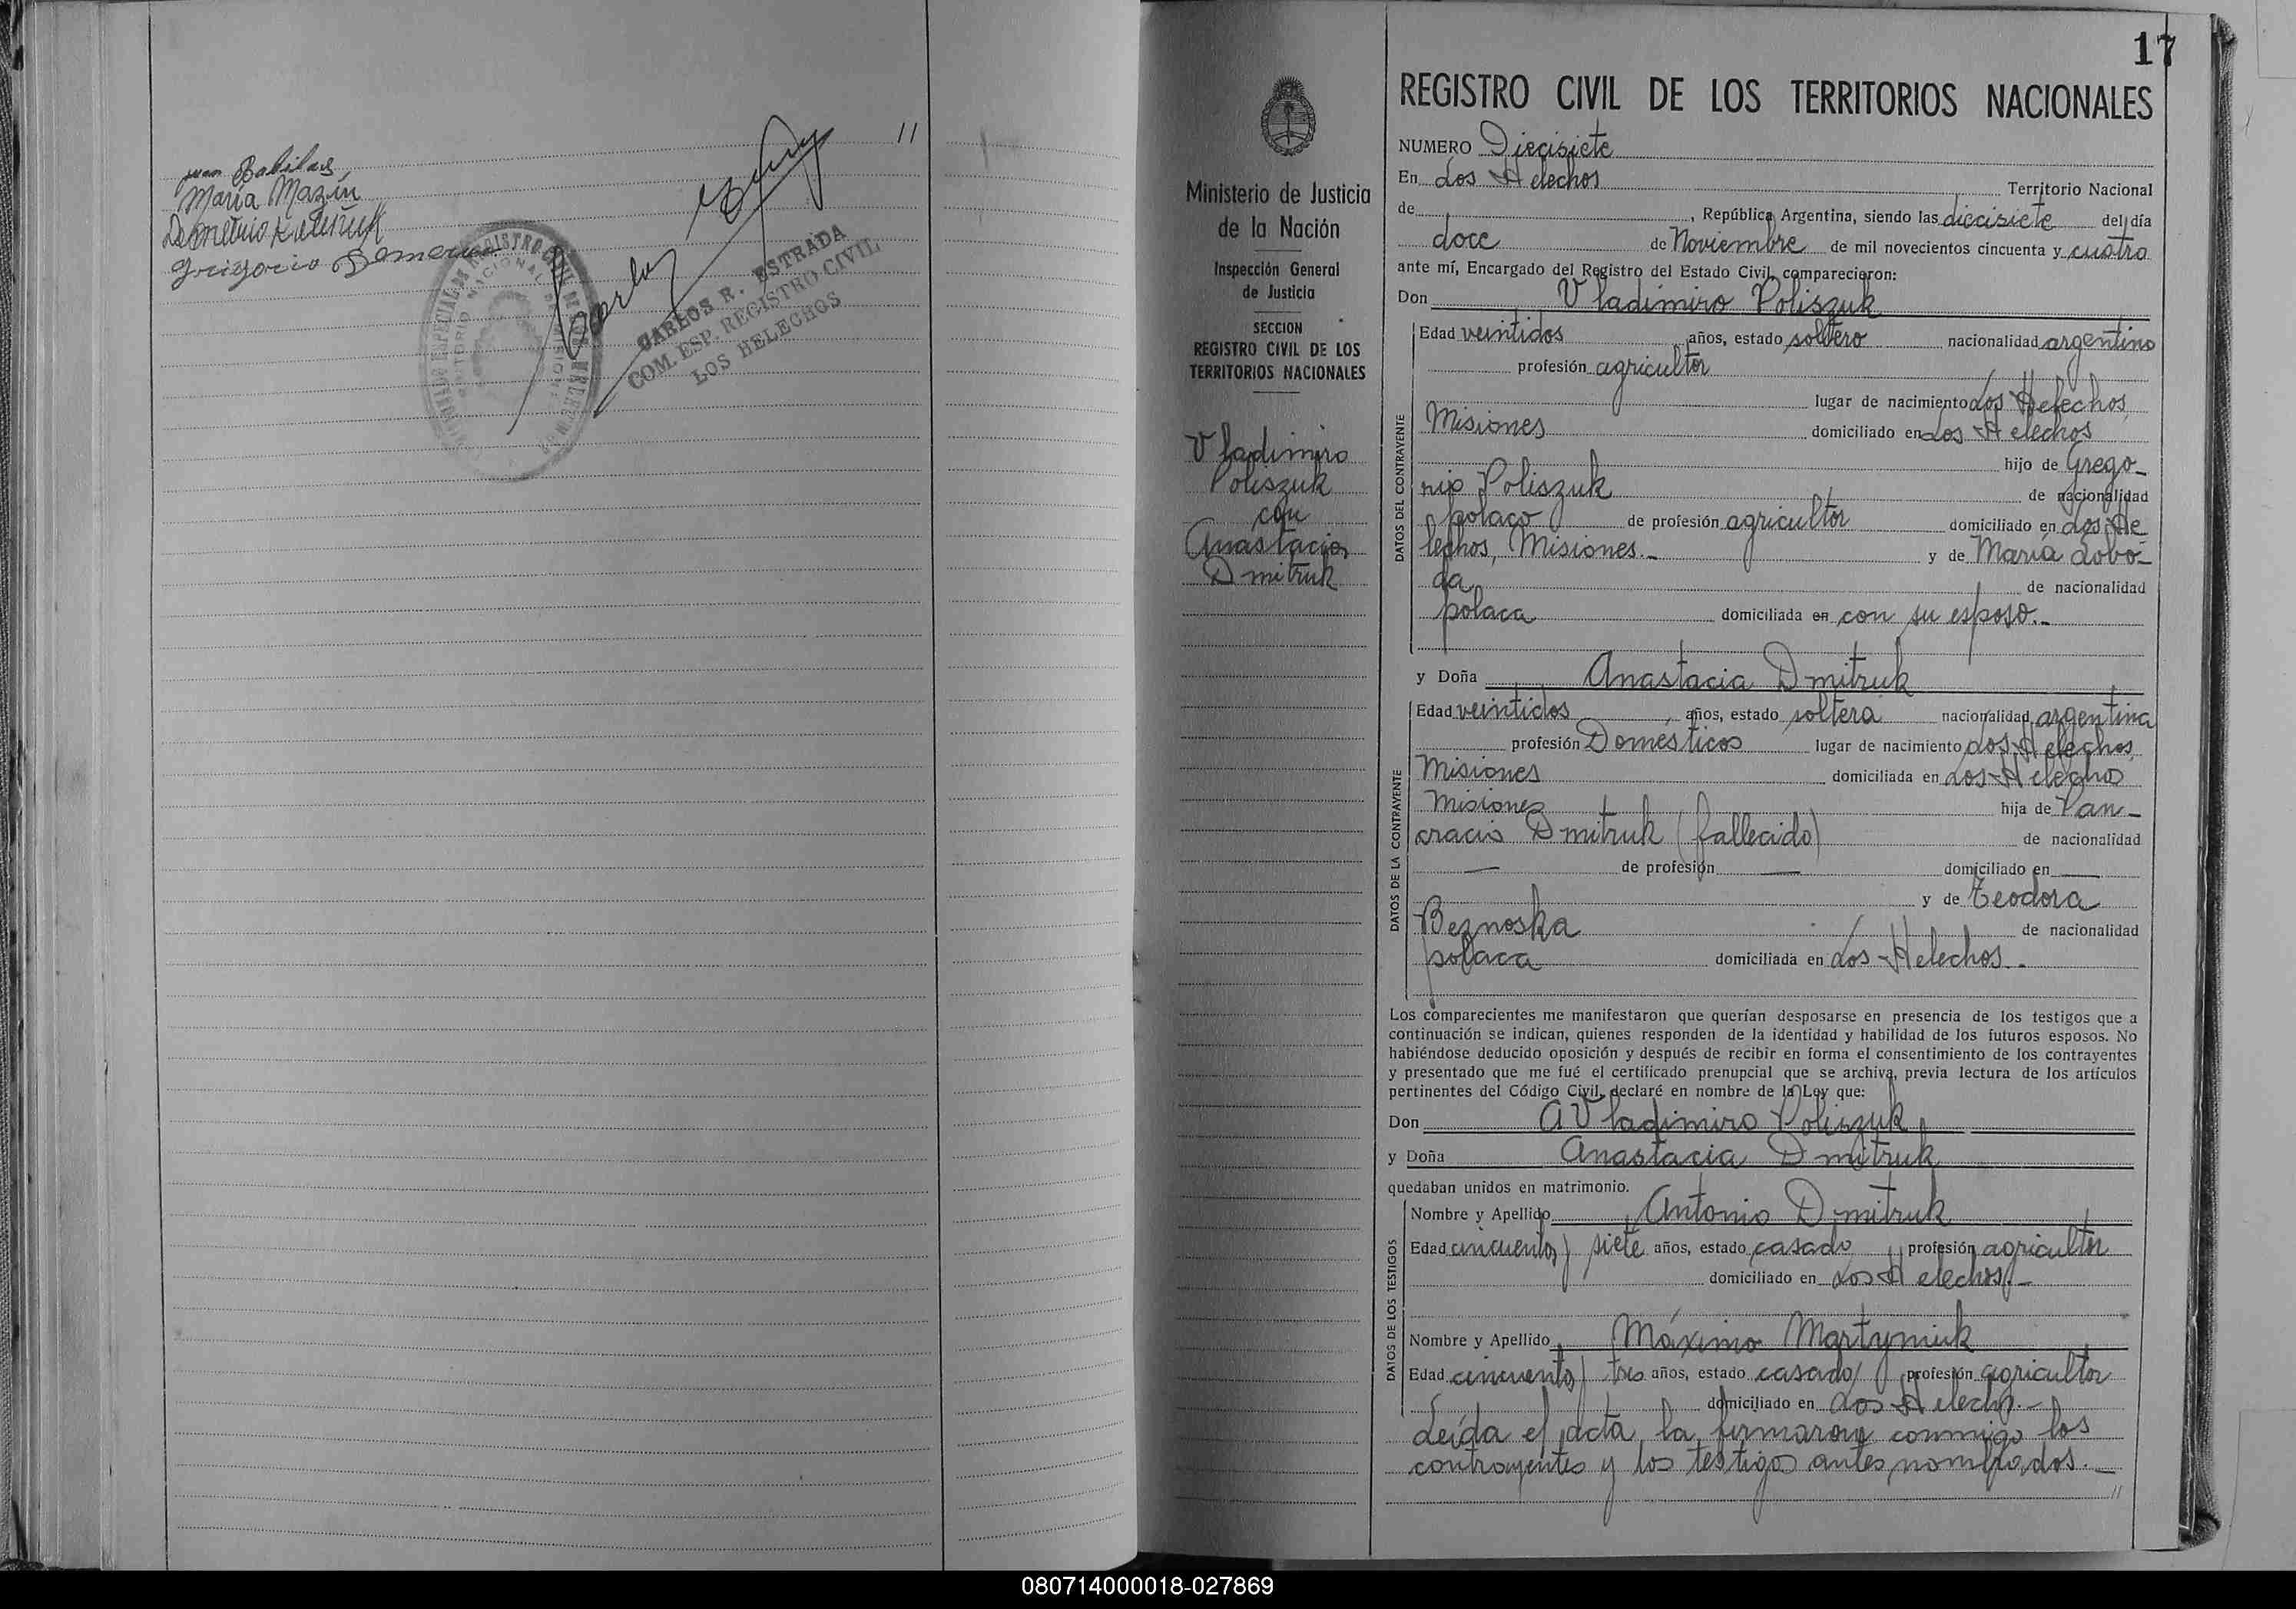 //
Juan Babilas
María Mazín
Demetrio
Grigorio
Carlos
CARLOS R. ESTRADA
COM. ESP. REGISTRO CIVIL
LOS HELECHOS
17
Ministerio de Justicia
de la Nación
Inspección General
de Justicia
SECCION
REGISTRO CIVIL DE LOS
TERRITORIOS NACIONALES
Vladimiro
Poliszuk
con
Anastacia
Dmitruk
REGISTRO CIVIL DE LOS TERRITORIOS NACIONALES
NUMERO Diecisiete
En Los Helechos Territorio Nacional
de , República Argentina, siendo las diecisiete del día
doce de Noviembre de mil novecientos cincuenta y cuatro
ante mí, Encargado del Registro del Estado Civil, comparecieron:
Don Vladimiro Poliszuk
DATOS DEL CONTRAYENTE
Edad veintidos años, estado soltero nacionalidad argentino
profesión agricultor
lugar de nacimiento Los Helechos
Misiones domiciliado en Los Helechos
hijo de Grego-
rio Poliszuk de nacionalidad
polaco de profesión agricultor domiciliado en Los He-
lechos, Misiones.- y de María Lobo-
da de nacionalidad
polaca domiciliada en con su esposo.-
y Doña Anastacia Dmitruk
DATOS DE LA CONTRAYENTE
Edad veintidos años, estado soltera nacionalidad argentina
profesión Domésticos lugar de nacimiento Los Helechos,
Misiones domiciliada en Los Helechos
Misiones hija de Pan-
cracio Dmitruk (fallecido) de nacionalidad
— de profesión — domiciliado en —
y de Teodora
Beznoska de nacionalidad
polaca domiciliada en Los Helechos.-
Los comparecientes me manifestaron que querían desposarse en presencia de los testigos que a
continuación se indican, quienes responden de la identidad y habilidad de los futuros esposos. No
habiéndose deducido oposición y después de recibir en forma el consentimiento de los contrayentes
y presentado que me fué el certificado prenupcial que se archiva, previa lectura de los artículos
pertinentes del Código Civil, declaré en nombre de la Ley que:
Don A Vladimiro Poliszuk
y Doña Anastacia Dmitruk
quedaban unidos en matrimonio.
DATOS DE LOS TESTIGOS
Nombre y Apellido Antonio Dmitruk
Edad cincuenta y siete años, estado casado profesión agricultor
domiciliado en Los Helechos.-
Nombre y Apellido Máximo Martyniuk
Edad cincuenta y tres años, estado casado profesión agricultor
domiciliado en Los Helechos.-
Leída el acta la firmaron conmigo los
contrayentes y los testigos antes nombrados.-
//
080714000018-027869